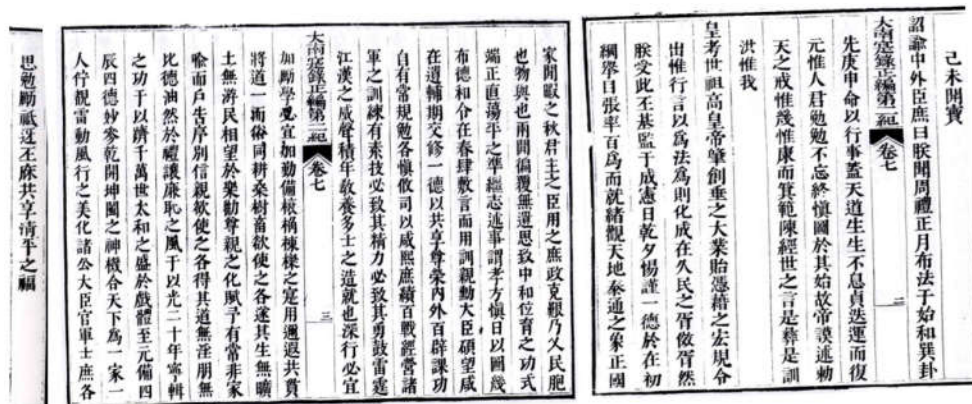 己未開寶
詔諭中外臣庶曰朕聞周禮正月布法于始和巽卦
大南寔錄正編第二紀 卷七 二
先庚申命以行事蓋天道生生不息貞迭運而復
元惟人君勉勉不忘終慎圖於其始故帝謨述勅
天之戒惟幾惟康而箕範陳經世之言是彝是訓
洪惟我
皇考世祖高皇帝肇創垂之大業貽憑藉之宏規令
出惟行言以為法為則化成在久民之胥傚胥然
朕受此丕基監于成憲日乾夕惕謹一德於在初
綱舉目張率百為而就緒觀天地泰通之象正國
家閒暇之秋君主之臣用之庶政克艱乃乂民胞
也物與也兩間徧覆無遺思致中和位育之功式
端正直蕩平之準繼志述事謂孝方慎日以圖幾
布德和令在春肆敷言而用訓親勳大臣碩望咸
在道輔期交修一德以共享尊榮內外百辟課功
自有常規勉各慎攸司以咸熙庶績百戰經營諸
軍之訓練有素技必致其精力必致其勇鼓雷霆
江漢之威聲積年敎養多士之造就也深行必宜
大南寔錄正編第二紀 卷七 三
加勵學必宜加勤備榱桷棟樑之寔用遐邇共貫
將道一而俗同耕桑樹畜欲使之各遂其生無曠
土無游民相望於樂勸尊親之化賦予有常非家
喻而戶告序別信親欲使之各得其道無淫朋無
比德油然於禮讓廉恥之風于以光二十年寧輯
之功于以躋千萬世太和之盛於戲體至元備四
辰四德妙參乾開坤闔之神機合天下為一家一
人佇覩雷動風行之美化諸公大臣官軍士庶各
思勉勵祗迓丕庥共享清平之福